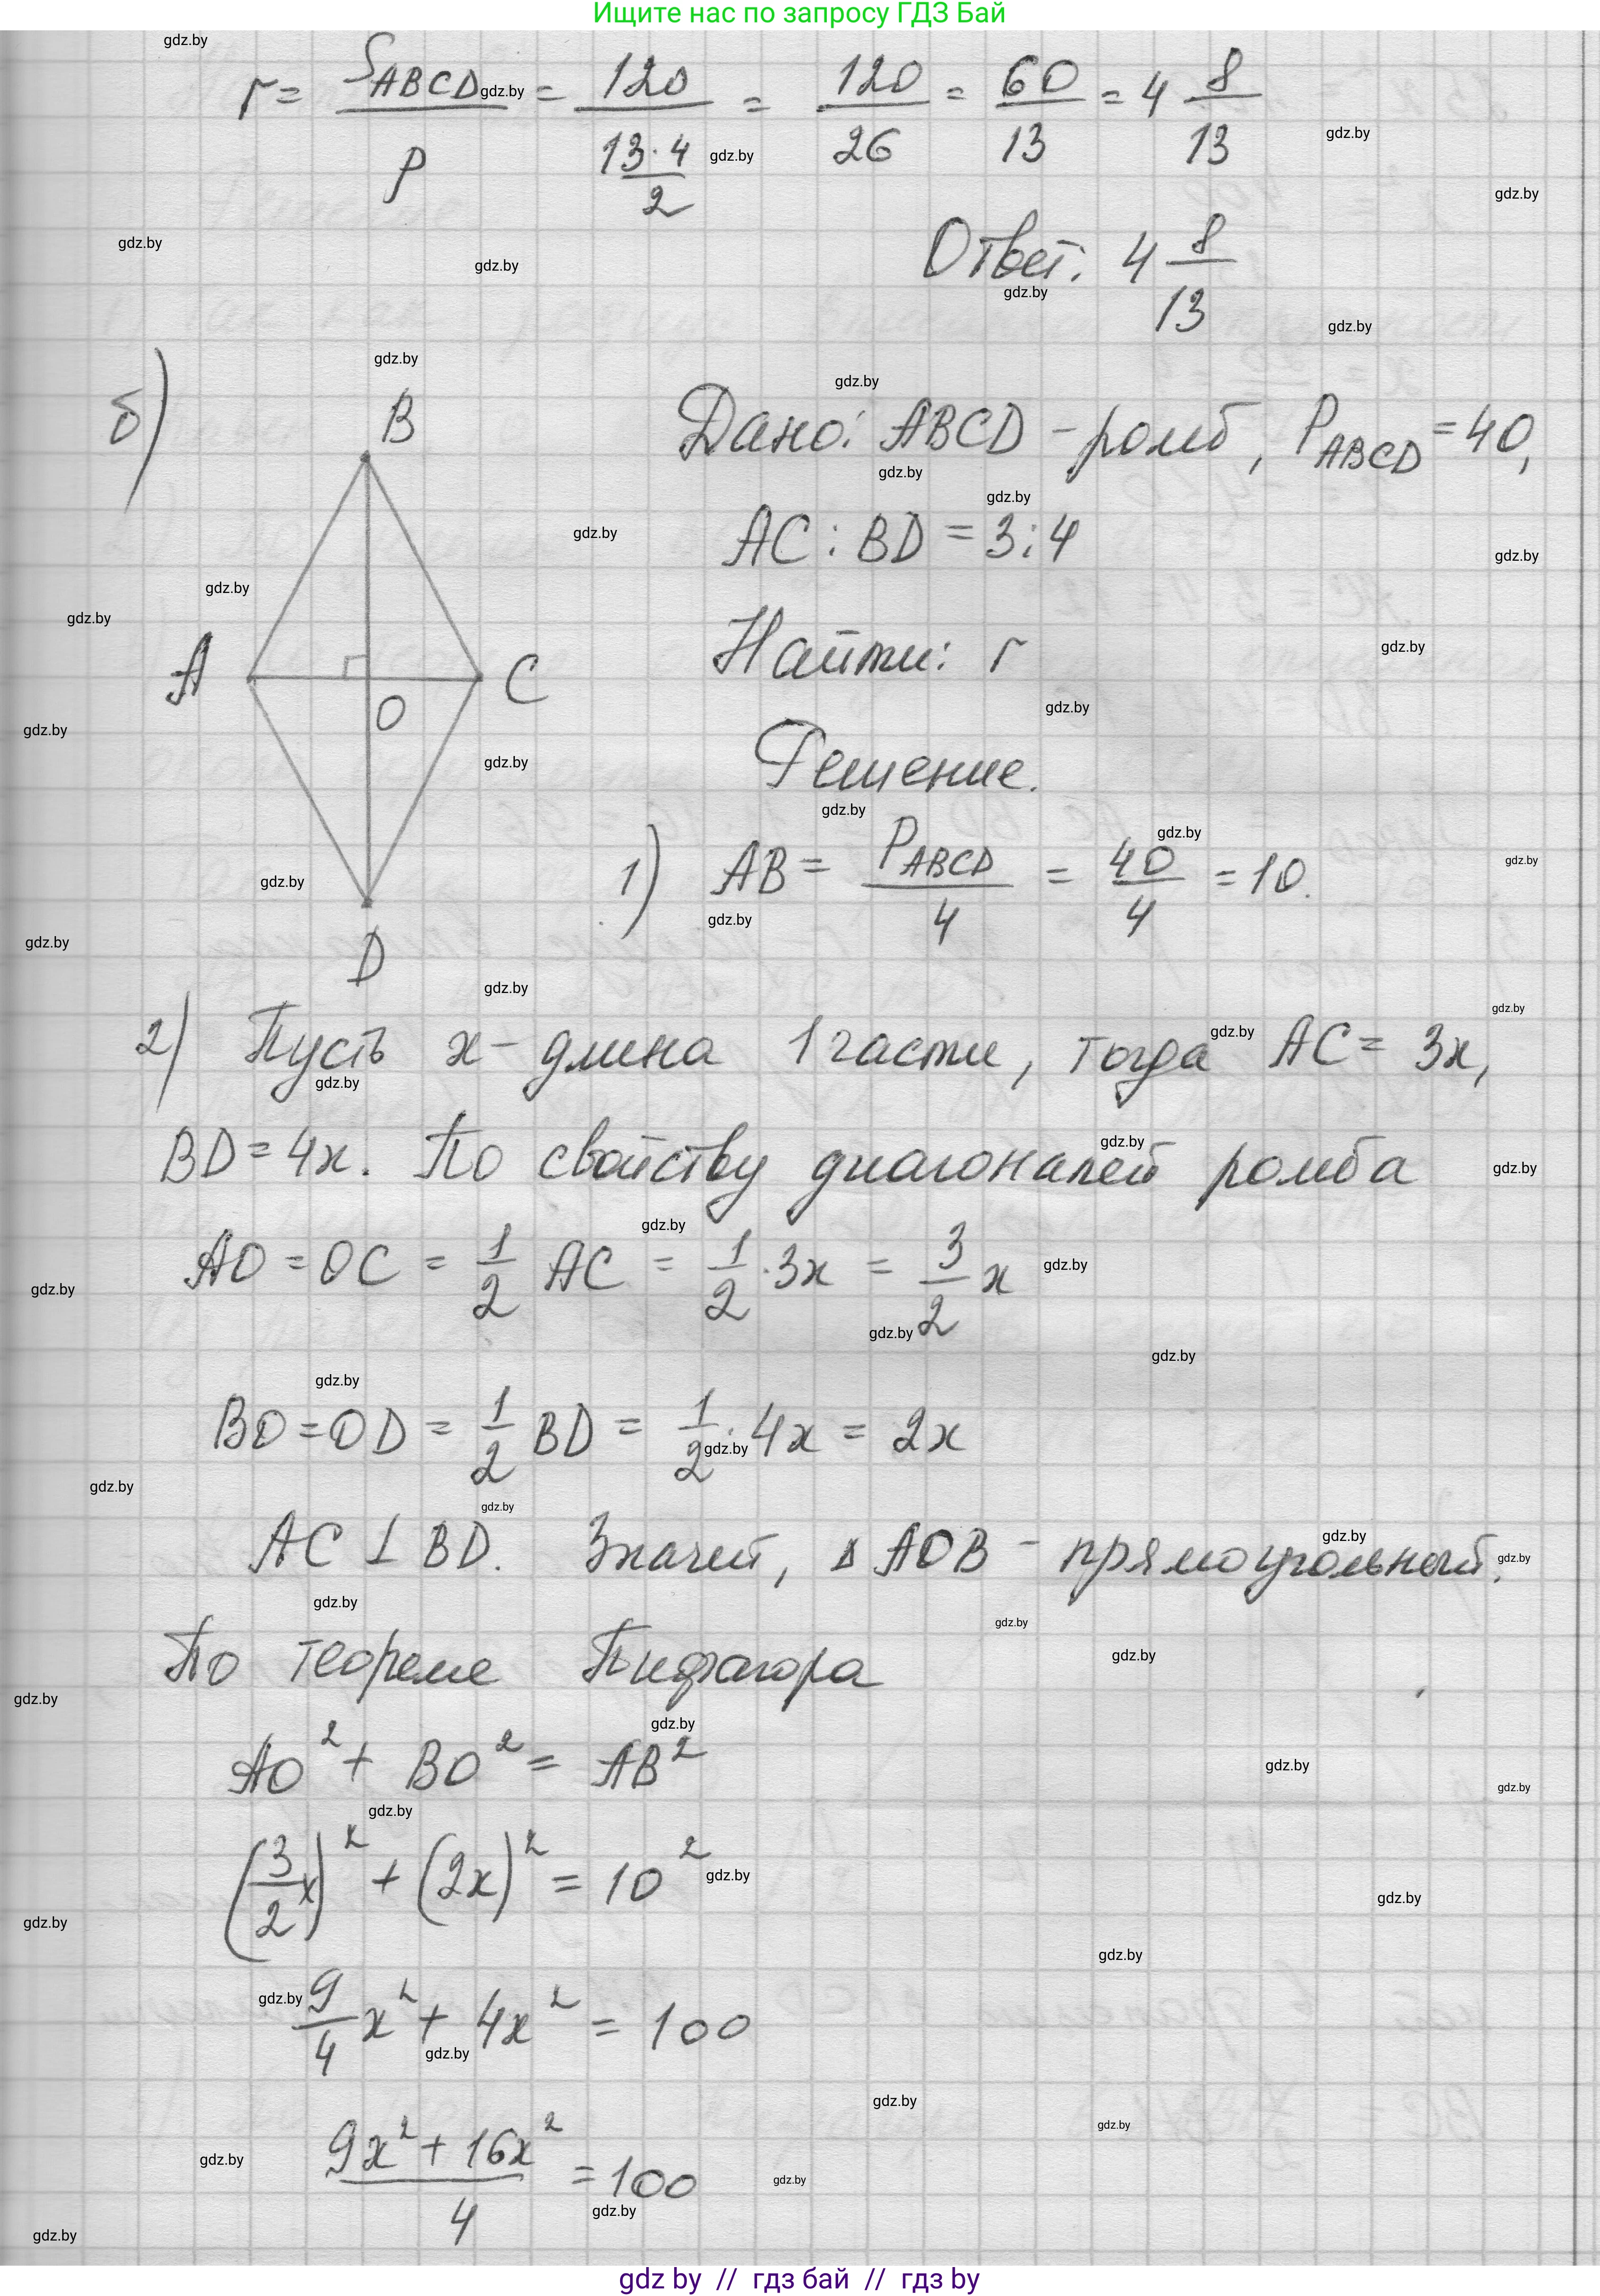 Ищите нас по запросу ГДЗ Бай
r = S_ABCD / p = 120 / (13·4 / 2) = 120 / 26 = 60 / 13 = 4 8/13
Ответ: 4 8/13
б)
B
A
C
O
D
Дано: ABCD - ромб, P_ABCD = 40,
AC : BD = 3 : 4
Найти: r
Решение.
1) AB = P_ABCD / 4 = 40 / 4 = 10.
2) Пусть x - длина 1 части, тогда AC = 3x,
BD = 4x. По свойству диагоналей ромба
AO = OC = 1/2 AC = 1/2 · 3x = 3/2 x
BO = OD = 1/2 BD = 1/2 · 4x = 2x
AC ⊥ BD. Значит, ΔAOB - прямоугольный.
По теореме Пифагора
AO² + BO² = AB²
(3/2 x)² + (2x)² = 10²
9/4 x² + 4x² = 100
(9x² + 16x²) / 4 = 100
gdz by // гдз бай // гдз by